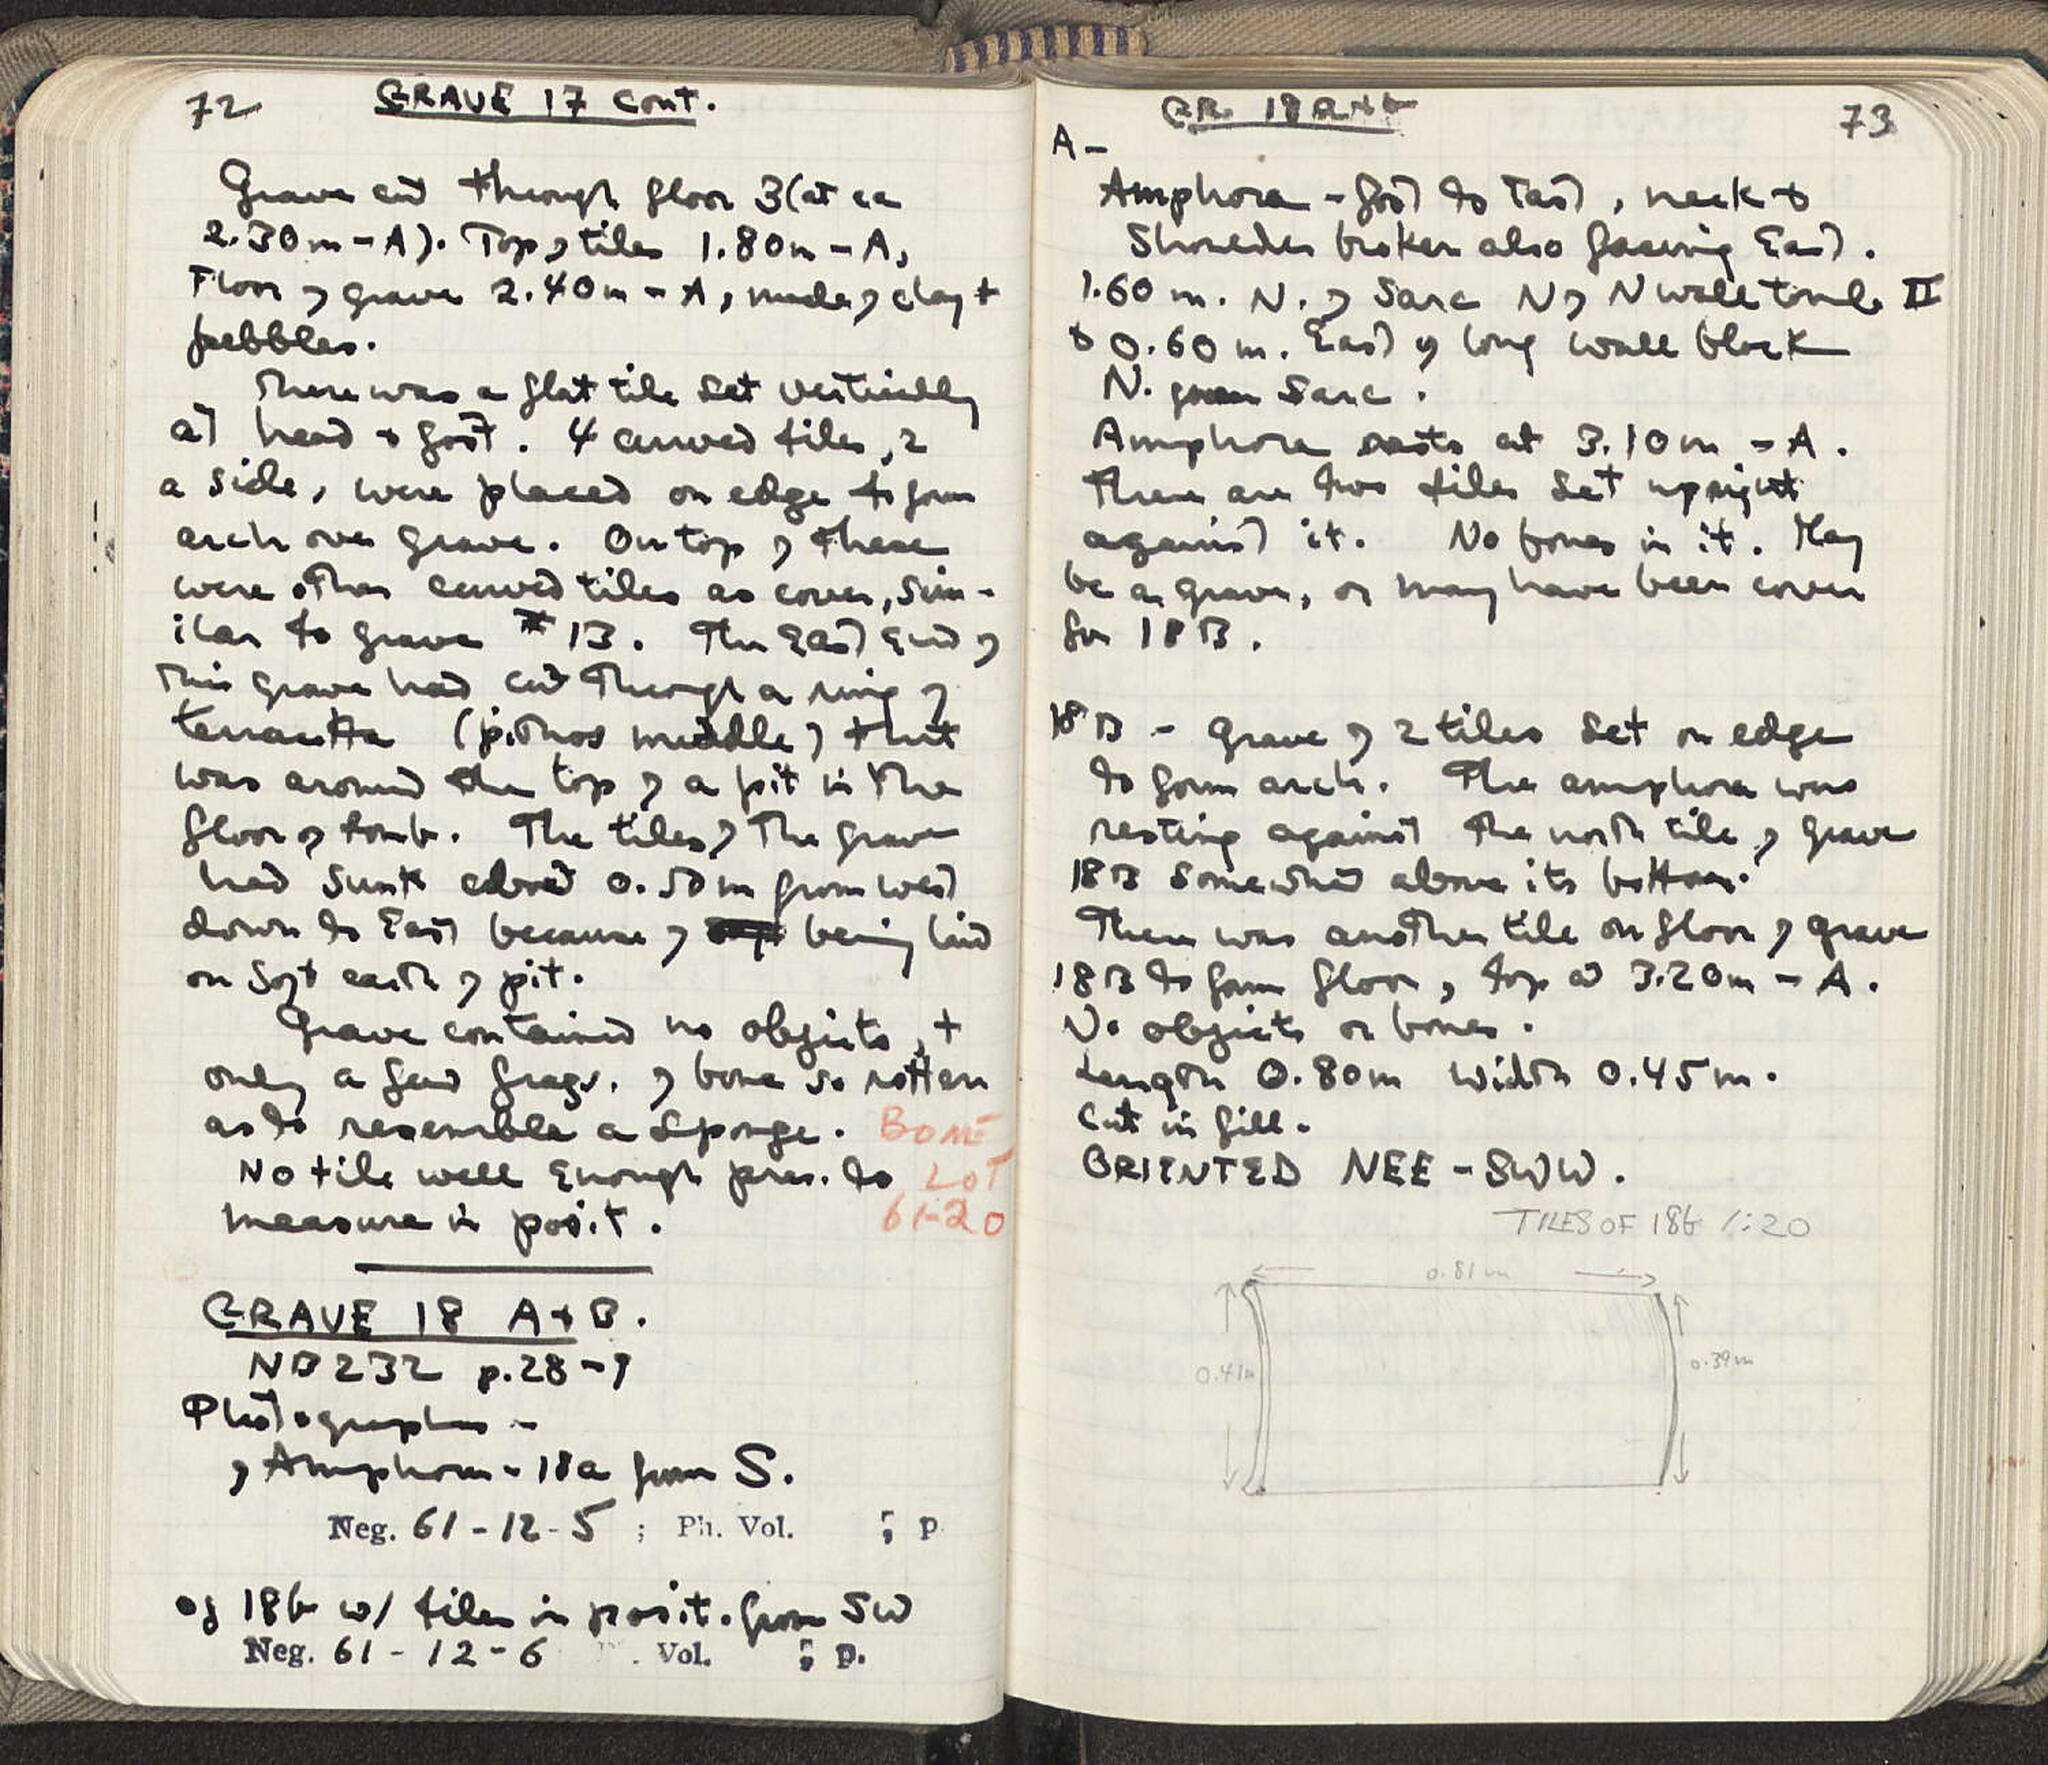 72 GRAVE 17 cont.
Grave cut through floor 3 (at ca
2.30m - A). Top of tiles 1.80m - A,
Floor of grave 2.40m - A, made of clay +
pebbles.
There was a flat tile set vertically
at head + foot. 4 curved tiles, 2
a side, were placed on edge to form
arch over grave. On top of these
were other curved tiles as cover, sim-
ilar to grave #13. The East end of
this grave had cut through a ring of
terracotta (pithos middle?) that
was around the top of a pit in the
floor of tomb. The tiles of the grave
had sunk about 0.50m from west
down to East because of being laid
on soft earth of pit.
Grave contained no objects, +
only a few frags. of bone so rotten
as to resemble a sponge. BONE
No tile well enough pres. to LOT
measure in posit. 61-20
GRAVE 18 A+B.
NB 232 p. 28-9
Photographs -
of Amphora - 18a from S.
Neg. 61-12-5 ; Ph. Vol. ; p
of 18b w/ tiles in posit. from SW
Neg. 61-12-6 . Vol. ; p.
GR. 18 A+b 73
A -
Amphora - foot to East, neck +
Shoulder broken also facing East.
1.60 m. N. of Sarc N of N wall tomb II
+ 0.60 m. East of long wall block
N. from Sarc.
Amphora rests at 3.10m - A.
There are two tiles set upright
against it. No bones in it. May
be a grave, or may have been cover
for 18B.
18B - grave of 2 tiles set on edge
to form arch. The amphora was
resting against the north tile of grave
18B somewhat above its bottom.
There was another tile on floor of grave
18B to form floor, top at 3.20m - A.
No objects or bones.
Length 0.80m Width 0.45m.
Cut in fill.
ORIENTED NEE - SWW.
TILES OF 18b 1:20
0.81m
0.41m 0.39m